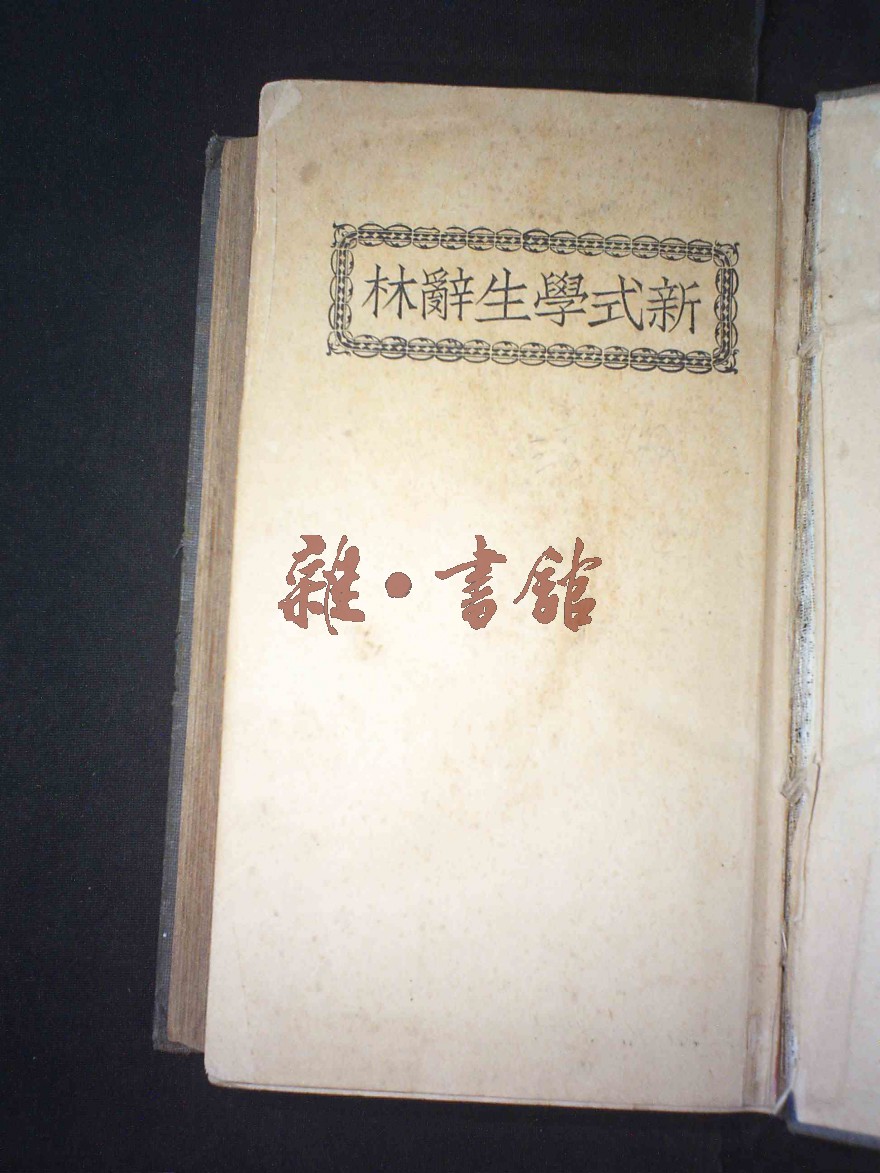 新式學生辭林
雜·書館